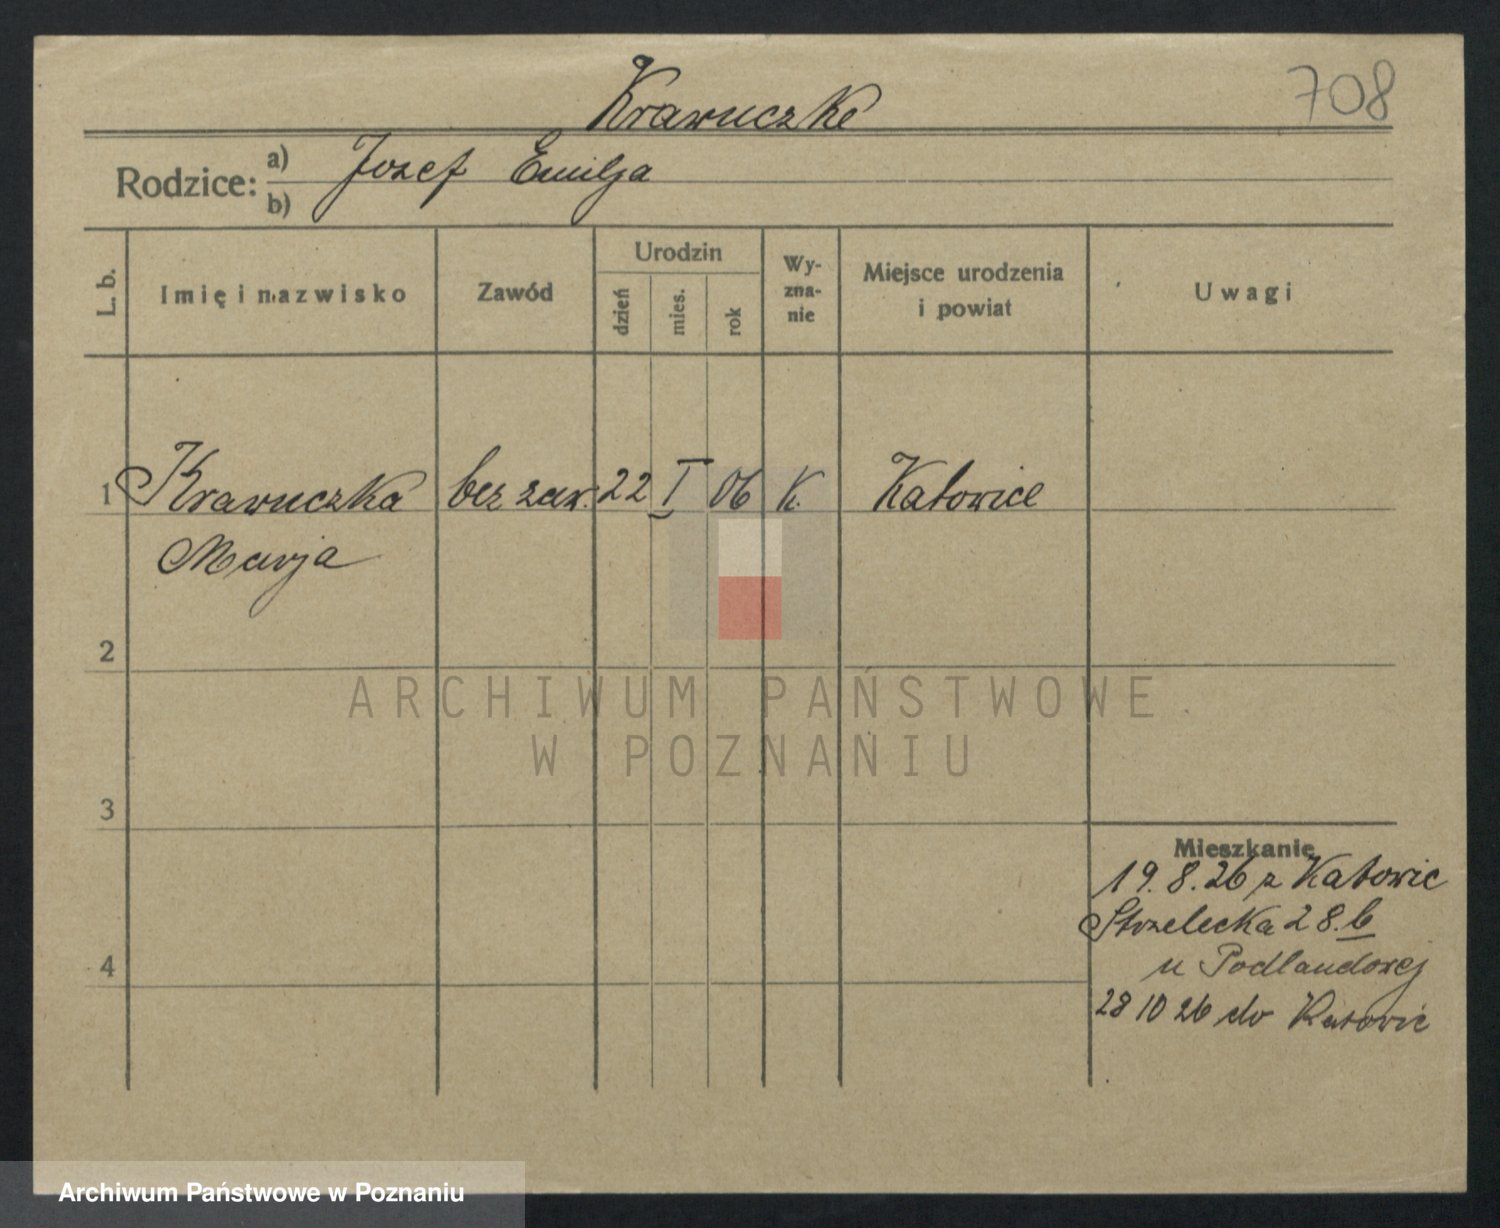 708
Krawuczke
Rodzice: a) Jozef Emilja
b)
L. b.
Imię i nazwisko
Zawód
Urodzin
dzień
mies.
rok
Wy-
zna-
nie
Miejsce urodzenia
i powiat
Uwagi
1 Krawuczka bez zaw. 22 I 06 K. Katowice
Marja
2
3
4
Mieszkanie
19.8.26 z Katowic
Strzelecka 28.b
u Podlaudowej
28 10 26 do Katowic
ARCHIWUM PAŃSTWOWE
W POZNANIU
Archiwum Państwowe w Poznaniu